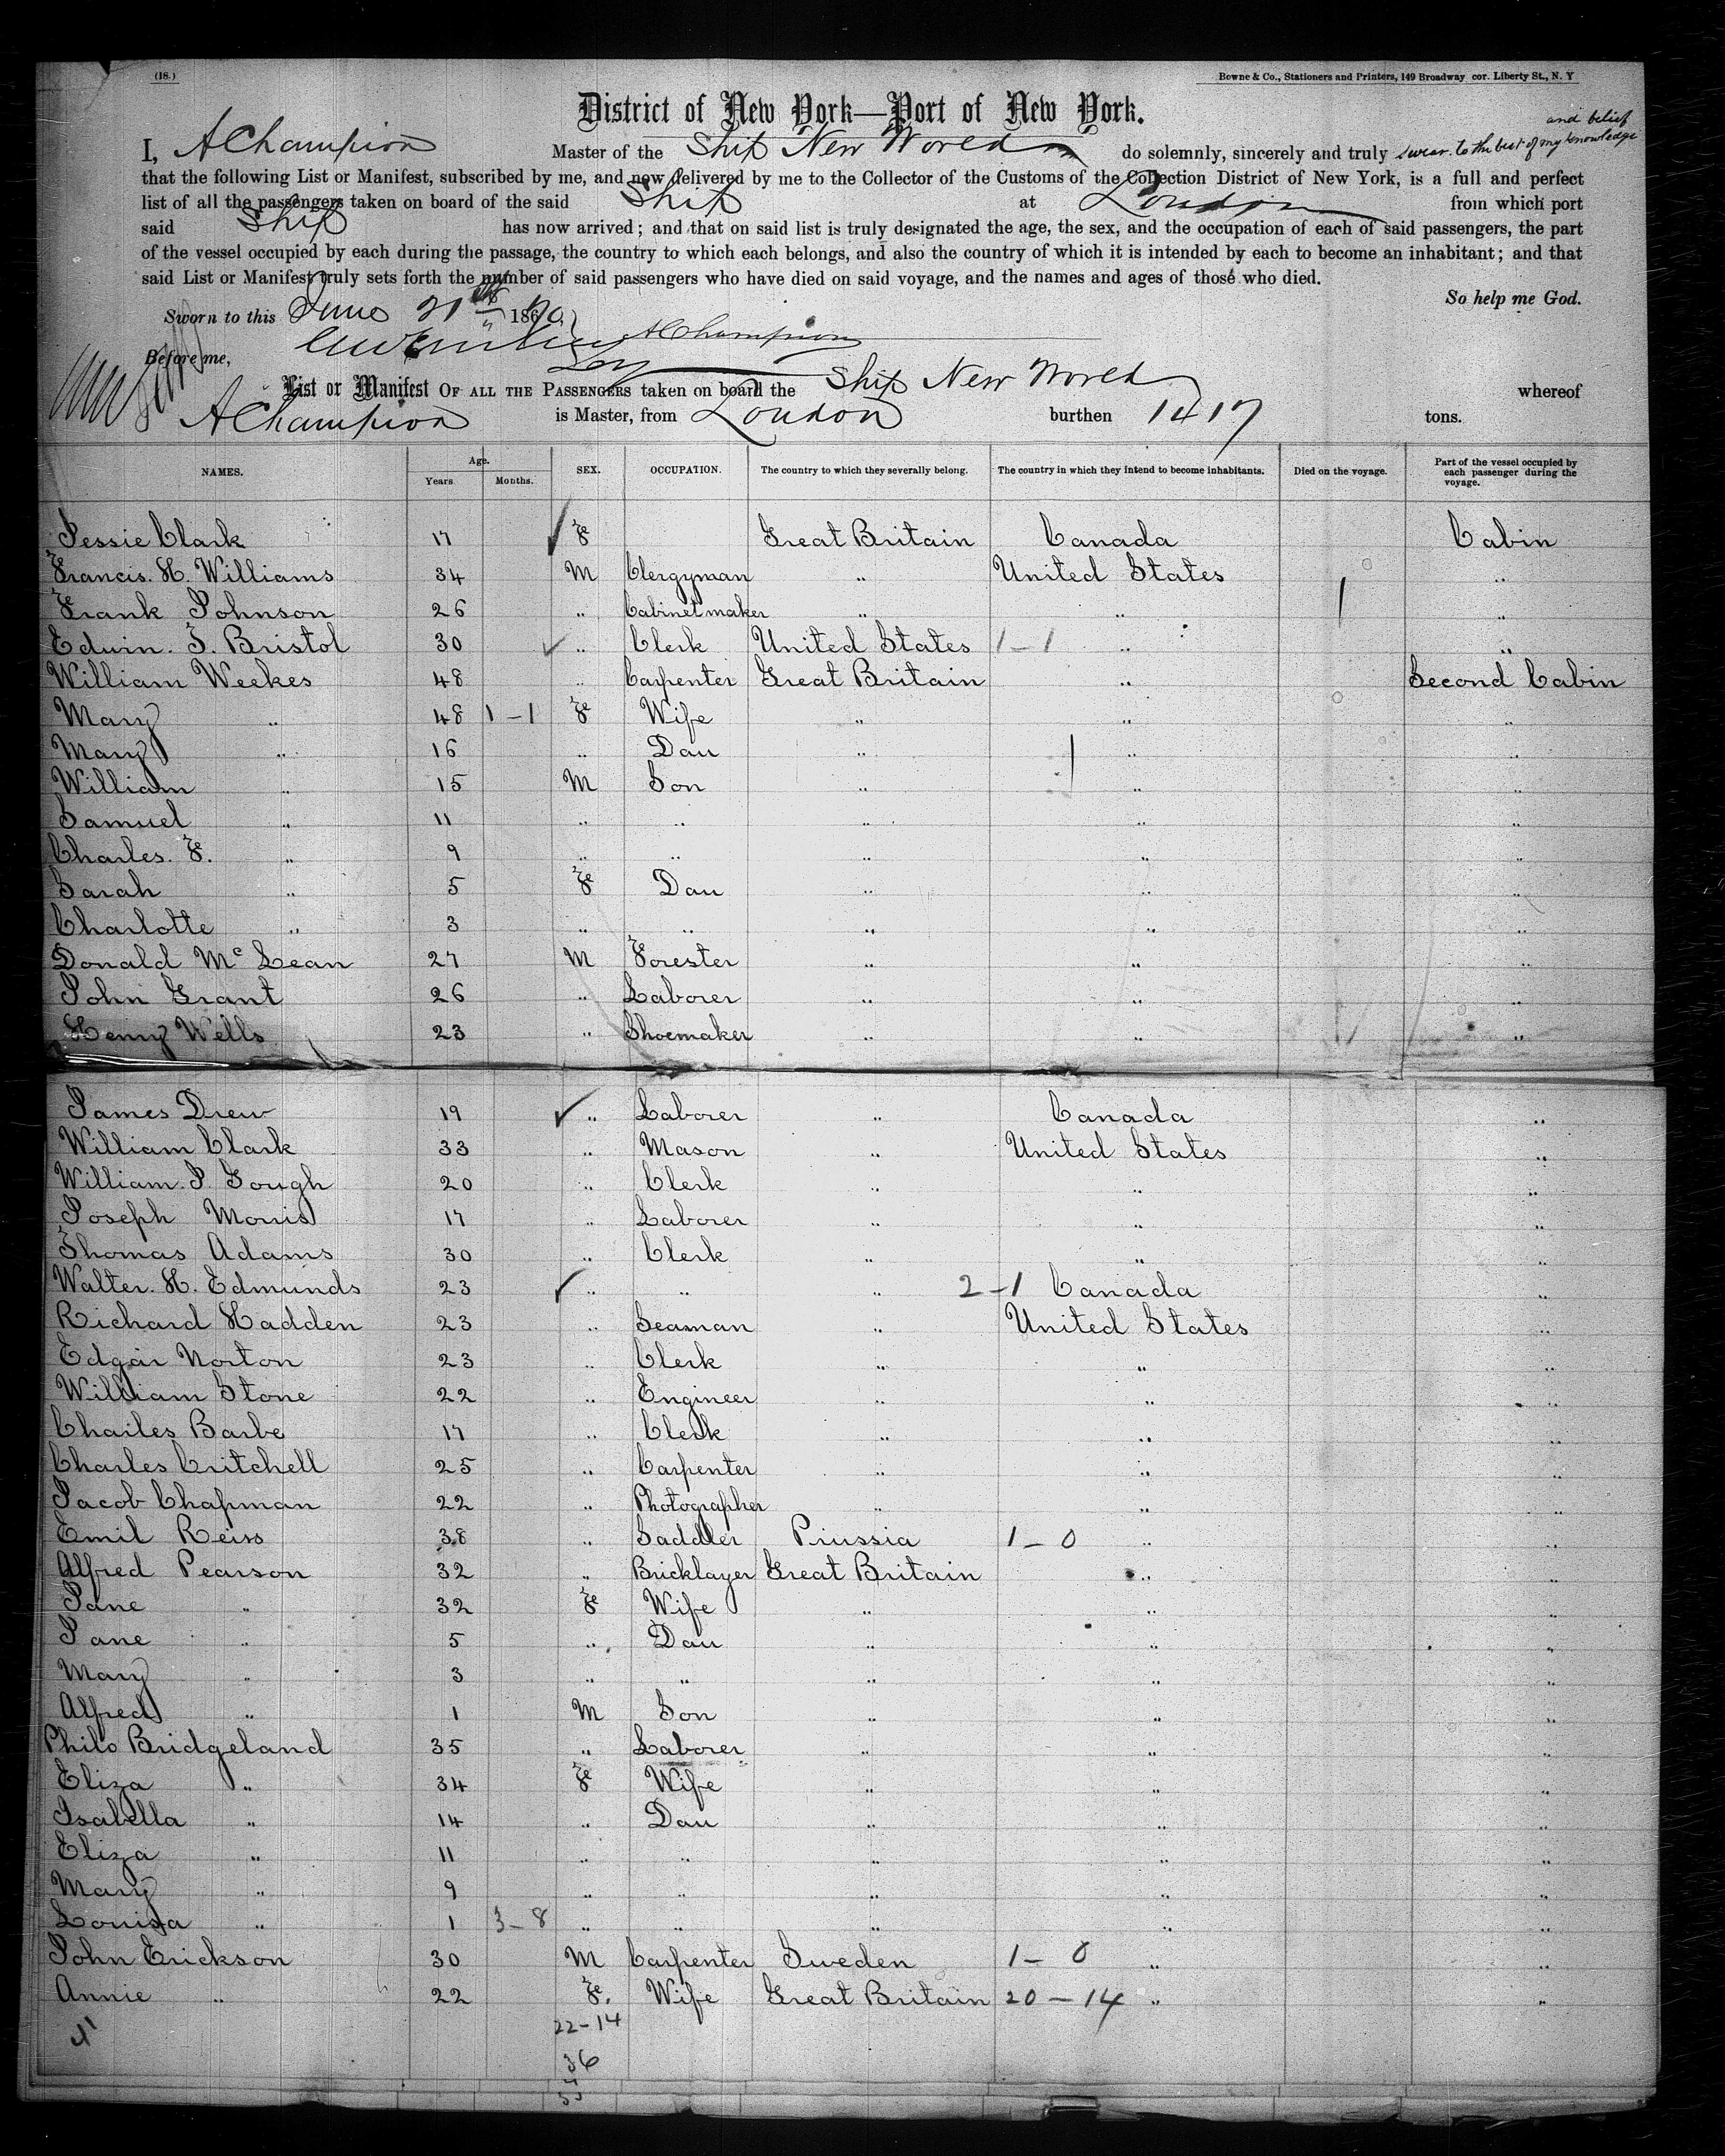 (18.)
Bowne & Co., Stationers and Printers, 149 Broadway cor. Liberty St., N. Y
District of New York—Port of New York.
and belief
I, A Champion Master of the Ship New World do solemnly, sincerely and truly swear to the best of my knowledge
that the following List or Manifest, subscribed by me, and now delivered by me to the Collector of the Customs of the Collection District of New York, is a full and perfect
list of all the passengers taken on board of the said Ship at London from which port
said Ship has now arrived; and that on said list is truly designated the age, the sex, and the occupation of each of said passengers, the part
of the vessel occupied by each during the passage, the country to which each belongs, and also the country of which it is intended by each to become an inhabitant; and that
said List or Manifest truly sets forth the number of said passengers who have died on said voyage, and the names and ages of those who died.
So help me God.
Sworn to this June 21st 1870
A Champion
Before me,
List or Manifest OF ALL THE PASSENGERS taken on board the Ship New World whereof
A Champion is Master, from London burthen 1417 tons.
NAMES. Age. Years Months. SEX. OCCUPATION. The country to which they severally belong. The country in which they intend to become inhabitants. Died on the voyage. Part of the vessel occupied by each passenger during the voyage.
Jessie Clark 17 Fe Great Britain Canada Cabin
Francis. H. Williams 34 M Clergyman " United States "
Frank Johnson 26 " Cabinet maker " "
Edwin. T. Bristol 30 " Clerk United States 1-1 " "
William Weekes 48 " Carpenter Great Britain " Second Cabin
Mary " 48 1-1 Fe Wife " " "
Mary " 16 " Dau " " "
William " 15 M Son " " "
Samuel " 11 " " " " "
Charles. F. " 9 " " " " "
Sarah " 5 Fe Dau " " "
Charlotte " 3 " " " " "
Donald Mc Lean 27 M Forester " " "
John Grant 26 " Laborer " " "
Henry Wells 23 " Shoemaker " " "
James Drew 19 " Laborer " Canada "
William Clark 33 " Mason " United States "
William. J. Gough 20 " Clerk " " "
Joseph Morris 17 " Laborer " " "
Thomas Adams 30 " Clerk " " "
Walter. H. Edmunds 23 " " " 2-1 Canada "
Richard Hadden 23 " Seaman " United States "
Edgar Norton 23 " Clerk " " "
William Stone 22 " Engineer " " "
Charles Barbe 17 " Clerk " " "
Charles Critchell 25 " Carpenter " " "
Jacob Chapman 22 " Photographer " " "
Emil Reiss 38 " Saddler Prussia 1-0 " "
Alfred Pearson 32 " Bricklayer Great Britain " "
Jane " 32 Fe Wife " " "
Jane " 5 " Dau " " "
Mary " 3 " " " " "
Alfred " 1 M Son " " "
Philo Bridgeland 35 " Laborer " " "
Eliza " 34 Fe Wife " " "
Isabella " 14 " Dau " " "
Eliza " 11 " " " " "
Mary " 9 " " " " "
Louisa " 1 3-8 " " " " "
John Erickson 30 M Carpenter Sweden 1-0 " "
Annie " 22 Fe. Wife Great Britain 20-14 " "
22-14
36